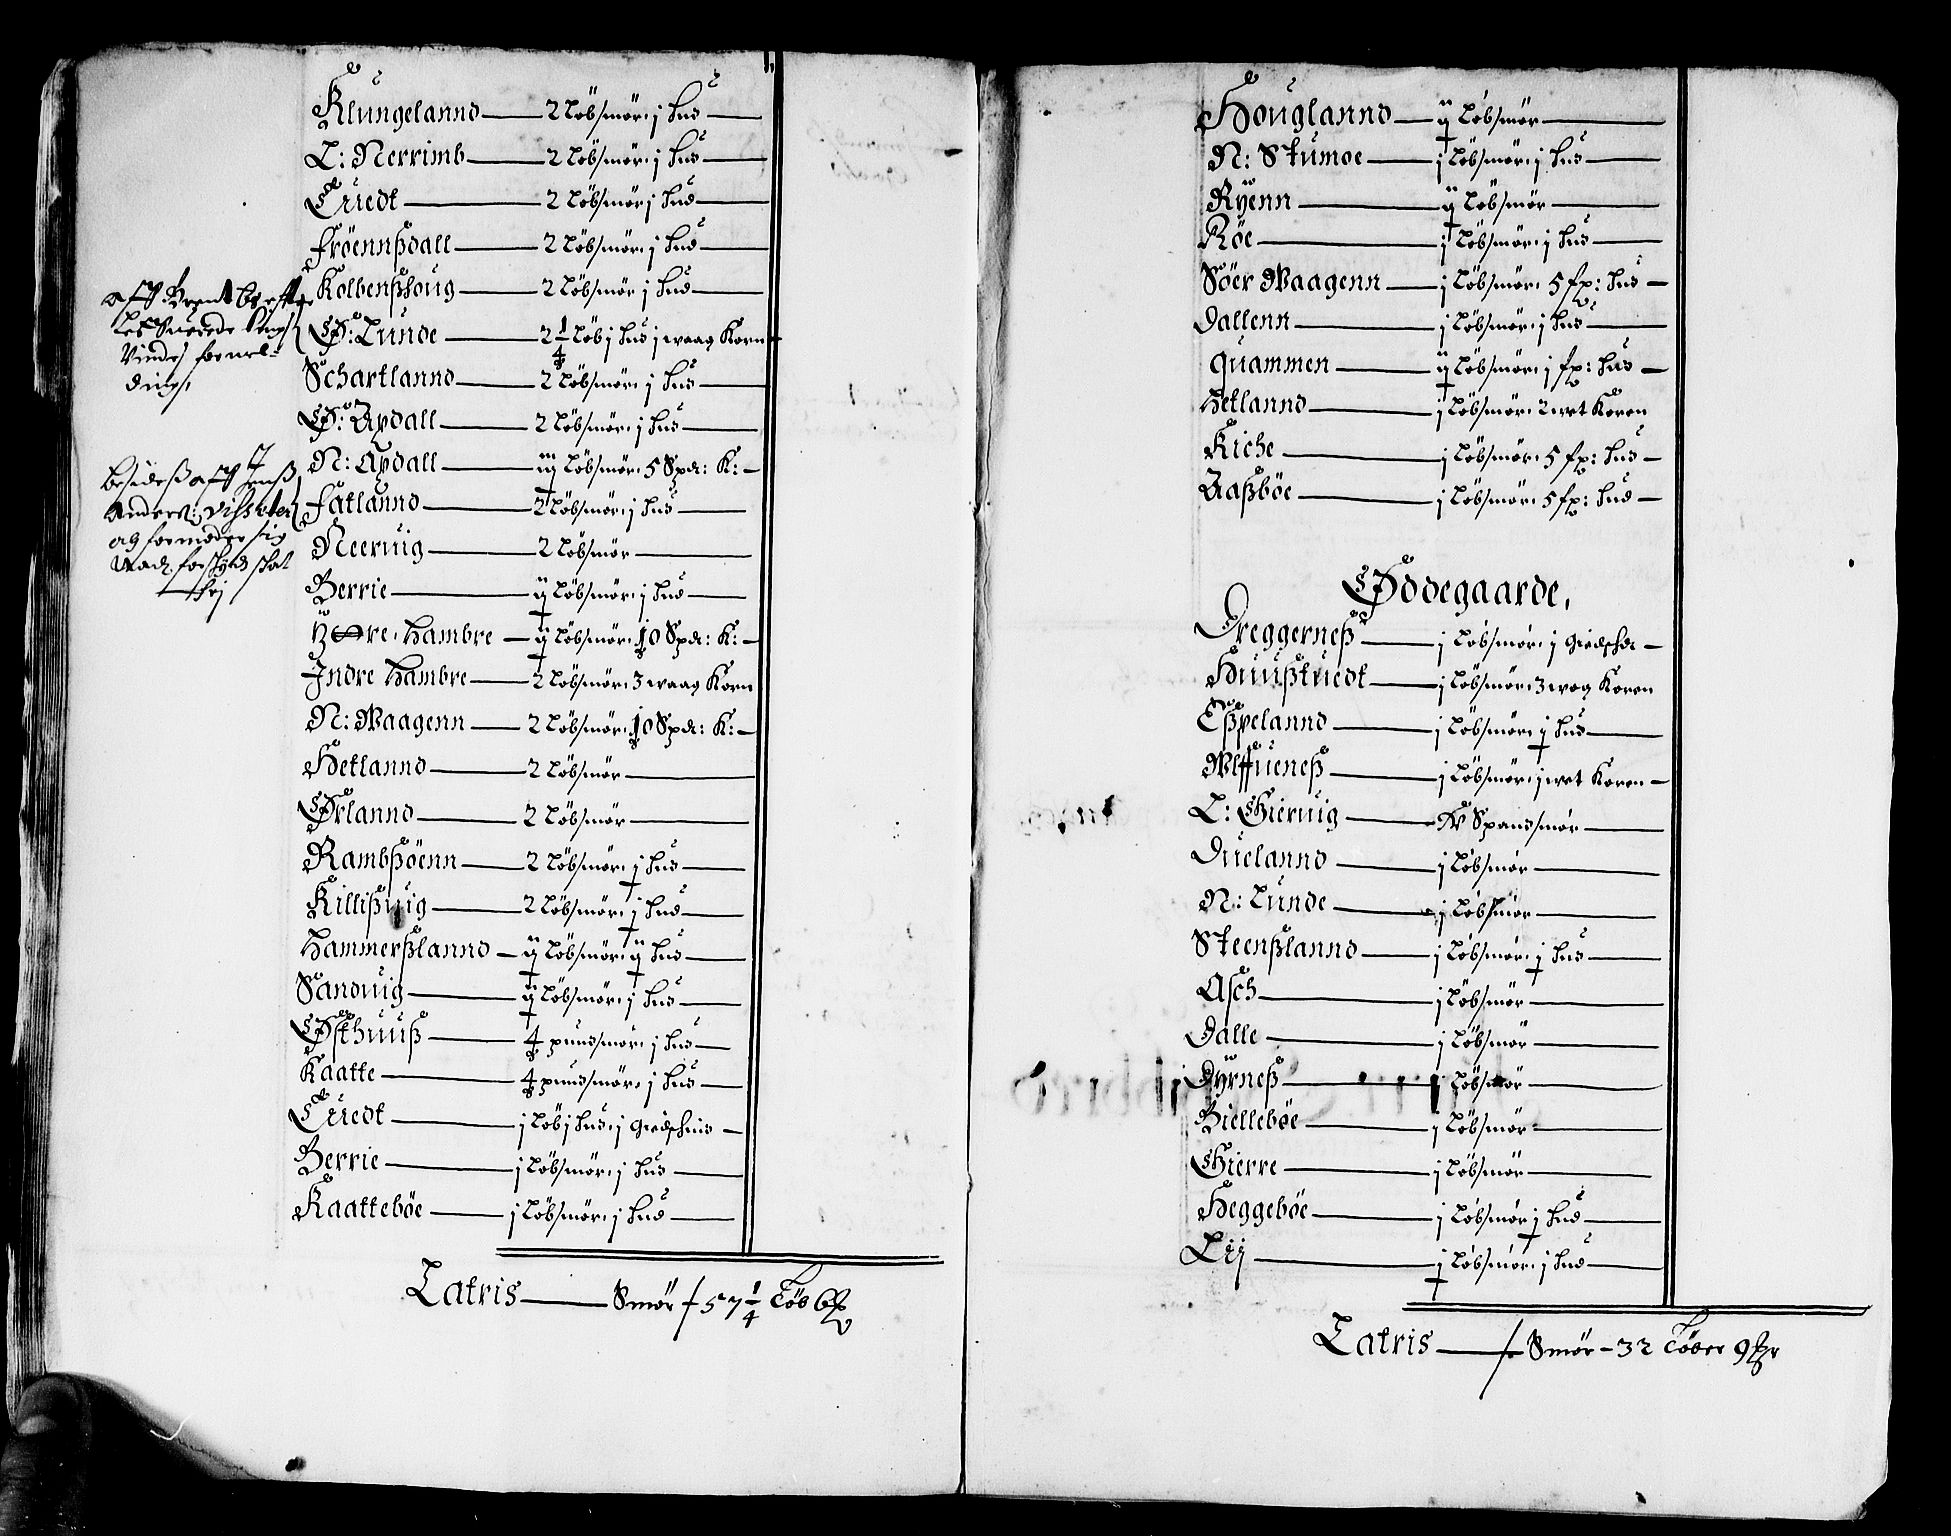 Klungelannd 2 Löbsmör: j Hud
L: Nerrimb 2 Löbsmör: j Hud
Eruedt 2 Löbsmör j Hud
Fröennßdall 2 Löbsmör: j Hud
Kolbenßhoug 2 Löbsmör j Hud
aff Brent
Ø: Lunde 2 1/4 Löb j Hud j waag Korn
Vindes formel-
dings
Schartlannd 2 Löbsmör: j Hud
Ø: Apdall 2 Löbsmör: j Hud
N: Apdall iij Löbsmör: 5 Spd: K:
besideß aff Jenß
Anderß:
og formoder sig
Fatlannd 2 Löbsmör: j Hud
Neeruig 2 Löbsmör
Berrie ij Löbsmör: j Hud
Yttre Hambre ij Löbsmör: 10 Spd: K:
Indre Hambre 2 Löbsmör: 3 waag Korn
N: Waagenn 2 Löbsmör: 10 Spd: K:
Hetlannd 2 Löbsmör
Ørlannd 2 Löbsmör
Rambßöenn 2 Löbsmör: j Hud
Killißuig 2 Löbsmör: j Hud
Hammerßlannd ij Löbsmör: ij Hud
Sanduig ij Löbsmör: j Hud
Østhuuß 4 pundsmör: j Hud
Kaatte 4 pundsmör: j Hud
Eruedt j Löb j Hud: j Giedschind
Berrie j Löbsmör: j Hud
Kaatteböe j Löbsmör: j Hud
Latris Smör 57 1/4 Löb 6
Houglannd ij Löbsmör
N: Stumoe j Löbsmör: j Hud
Ryenn ij Löbsmör
Röe j Löbsmör: j Hud
Söer Waagenn j Löbsmör: 5 fp: Hud
Dallenn j Löbsmör: j Hud
Quammen ij Löbsmör: j fp: Hud
Hetlannd j Löbsmör: 2 wet Koren
Kiche j Löbsmör: 5 fp: Hud
Aaßböe j Löbsmör: 5 fp: Hud
Ødegaarde,
Dreggerneß j Löbsmör: j Giedschd
Huußtuedt j Löbsmör: 3 wog Koren
Eßpelannd j Löbsmör: j Hud
Wlffueneß j Löbsmör: j wet Koren
L: Gieruig Spandsmör
Duelannd j Löbsmör
N: Lunde j Löbsmör
Steenßlannd j Löbsmör: j Hud
Asch j Löbsmör
Dalle j Löbsmör
Dyrneß j Löbsmör
Bielleböe j Löbsmör
Gierre j Löbsmör
Heggeböe j Löbsmör j Hud
Lij j Löbsmör: j Hud
Latris Smör 32 Löber 9